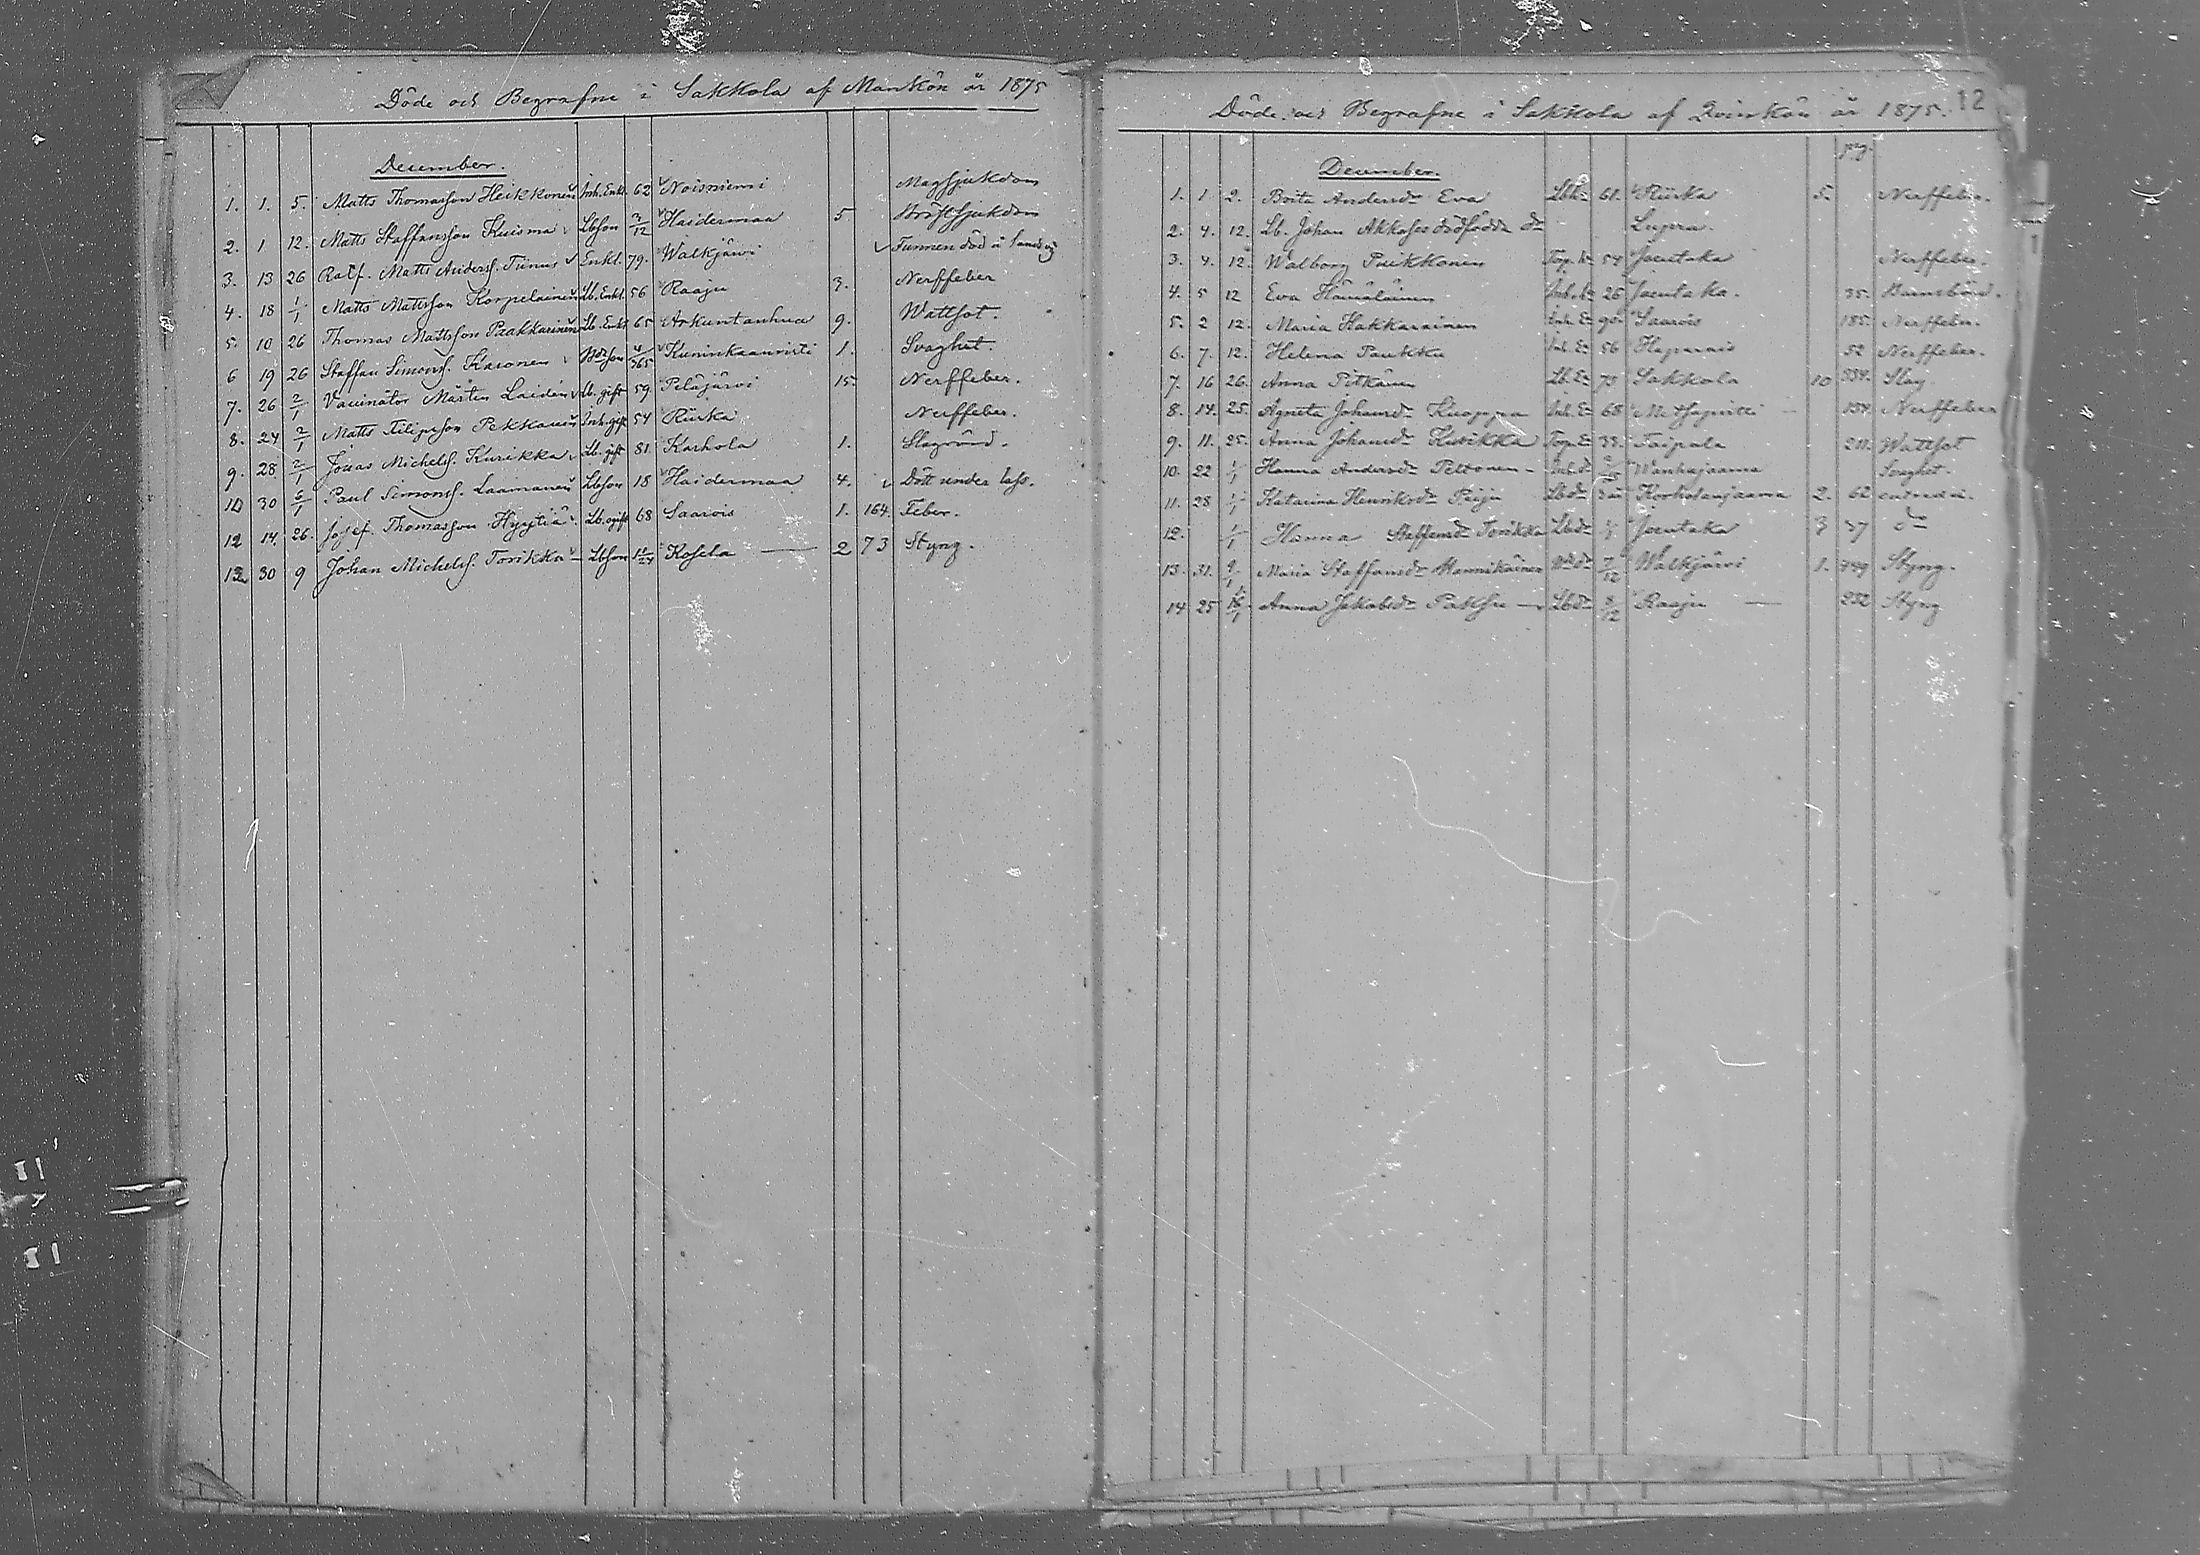 Döde och Begrafne i Sakkola af Mankön år 1875
December.
1. 1. 5. Matts Thomasson Heikkonen Inh. Enkl. 62 Noisniemi Magsjukdom
2. 1 12. Matts Staffansson Kuisma Lbson 2/12 Haidermaa 5 Bröstsjukdom
3. 13 26 Matts Anders. Enkl. 79. Walkjärvi Funnen död å
4. 18 1/1 Matts Mattsson Korpelainen Lb. Enkl. 56 Raaju 3. Nerffeber
5. 10 26 Thomas Mattsson Paakkarinen Lb. Enkl. 65 Arkuntanhua 9. Wattsot.
6 19 26 Staffan Simons. Kasonen son 4/365 Kuninkaanristi 1. Svaghet.
7. 26 2/1 Vaccinatör Mårten Laidén Lb. gift 59. Petäjärvi 15. Nerffeber.
8. 24 2/1 Matts Filipsson Pekkanen Inh. gift 54 Riiska Nerffeber.
9. 28 2/1 Jonas Michels. Kurikka Lb. gift 81 Karhola 1. Slag
10 30 6/1 Paul Simons. Laamanen Lbson 18 Haidermaa 4. Dött under lass.
12 14. 26. Josef Thomasson Hyytiä Lb. gift 68 Saarois 1. 164. Feber.
13 30 9 Johan Michels. Torikka Lbson Kosela — 2 73 Styng.
Döde och Begrafne i Sakkola af Qvinkön år 1875. 12
December.
1. 1 2. Brita Andersdr Eva Lbh 61. Riiska 5. Nerffeber.
2. 4. 12. Lb. Johan Akkases dödfödda dr Lapra.
3. 4. 12. Walborg Puikkonen 54 Joutaka Nerffeber.
4. 5 12 Eva Hämäläinen 26 Joutaka. 35. Barnsbörd.
5. 2 12. Maria Hakkarainen Inh. E. 90. Saarois 185. Nerffeber.
6. 7. 12. Helena Paukku Inh. E. 56 Haparais 52 Nerffeber.
7. 16 26. Anna Pitkänen Lb. E. 75 Sakkola 10 534. Slag
8. 14. 25. Agneta Johansdr Kuoppa Inh. E. 68 Metsäpirtti — 154. Nerffeber
9. 11. 25. Anna Johansdr Kurikka 33. Taipale 211. Wattsot
10. 22 1/1 Hanna Andersdr Peltonen — Wanhajaama Svaghet.
11. 28 1/1 Katarina Henriksdr Peiju Lbdr Korholanjaama 2. 62
12. 1/1 Hanna Staffansdr Torikka Lbdr Joutaka 3 37 do
13. 31. 9/1 Maria Staffansdr Hannikainen 7/12 Walkjärvi 1. 749 Styng.
14 25 16/1 Anna Jakobsdr Paksu — Lbdr 8/12 Raaju — 232 Styng